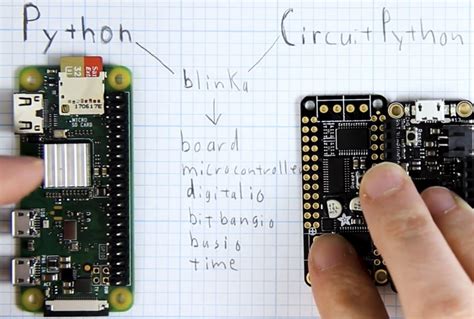 Python
CircuitPython
blinka
board
microcontroller
digitalio
bitbangio
busio
time
32
MICRO
SD CARD